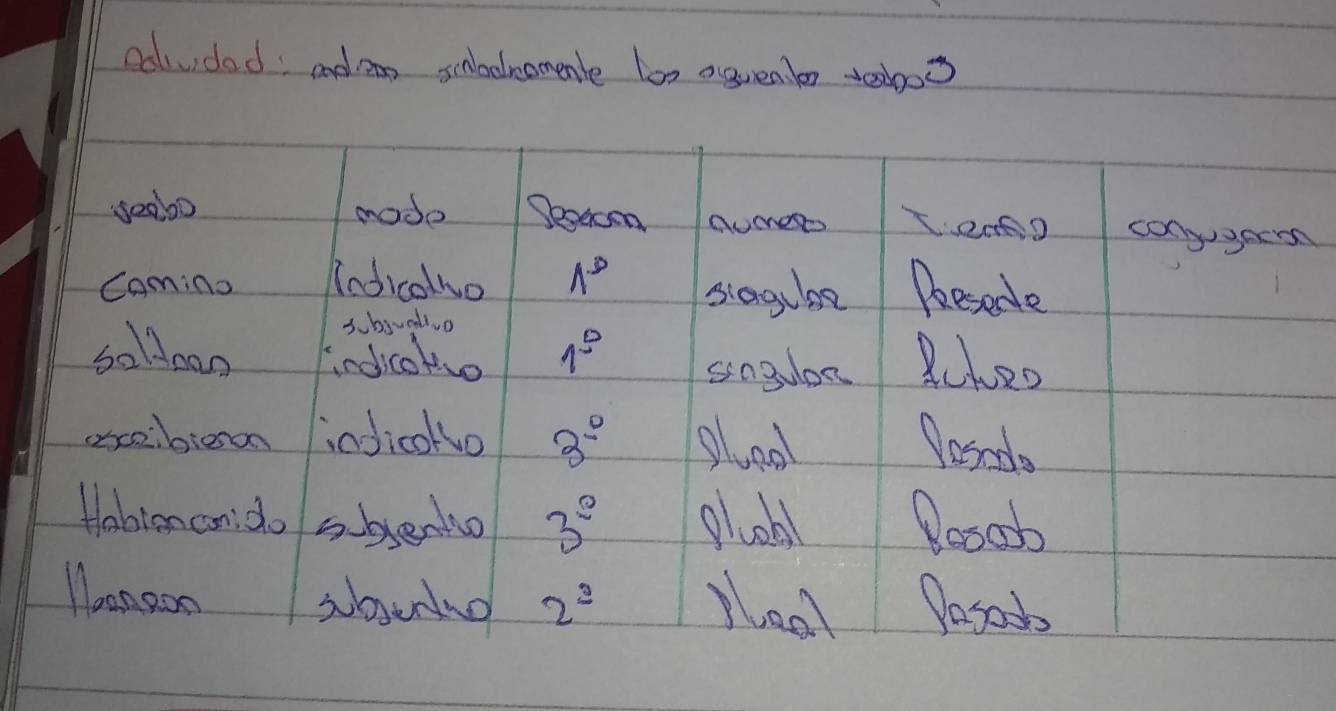 Actividad: analizo sintacticamente los siguientes verbos
verbo modo Persona numero Tiempo conjugacion
camino indicativo 1º singular Presente
subjuntivo
saltaran indicativo 1º singular Futuro
escribieron indicativo 3º Plural Pasado
Habian comido 3º Plural Pasado
2º Plural Pasado